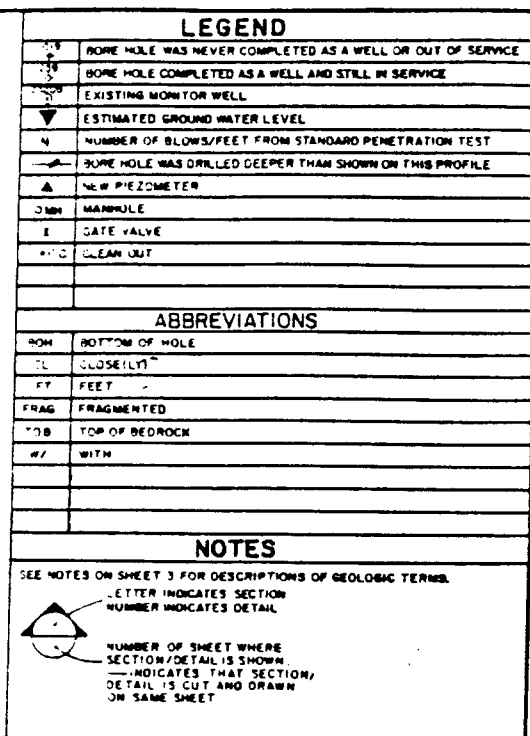 LEGEND
BORE HOLE WAS NEVER COMPLETED AS A WELL OR OUT OF SERVICE
BORE HOLE COMPLETED AS A WELL AND STILL IN SERVICE
EXISTING MONITOR WELL
ESTIMATED GROUND WATER LEVEL
N NUMBER OF BLOWS/FEET FROM STANDARD PENETRATION TEST
BORE HOLE WAS DRILLED DEEPER THAN SHOWN ON THIS PROFILE
NEW PIEZOMETER
MH MANHOLE
GATE VALVE
CLEAN OUT
ABBREVIATIONS
BOH BOTTOM OF HOLE
CL CLOSE(LY)
FT FEET
FRAG FRAGMENTED
TOB TOP OF BEDROCK
W/ WITH
NOTES
SEE NOTES ON SHEET 3 FOR DESCRIPTIONS OF GEOLOGIC TERMS.
LETTER INDICATES SECTION
NUMBER INDICATES DETAIL
NUMBER OF SHEET WHERE
SECTION/DETAIL IS SHOWN.
— INDICATES THAT SECTION/
DETAIL IS CUT AND DRAWN
ON SAME SHEET